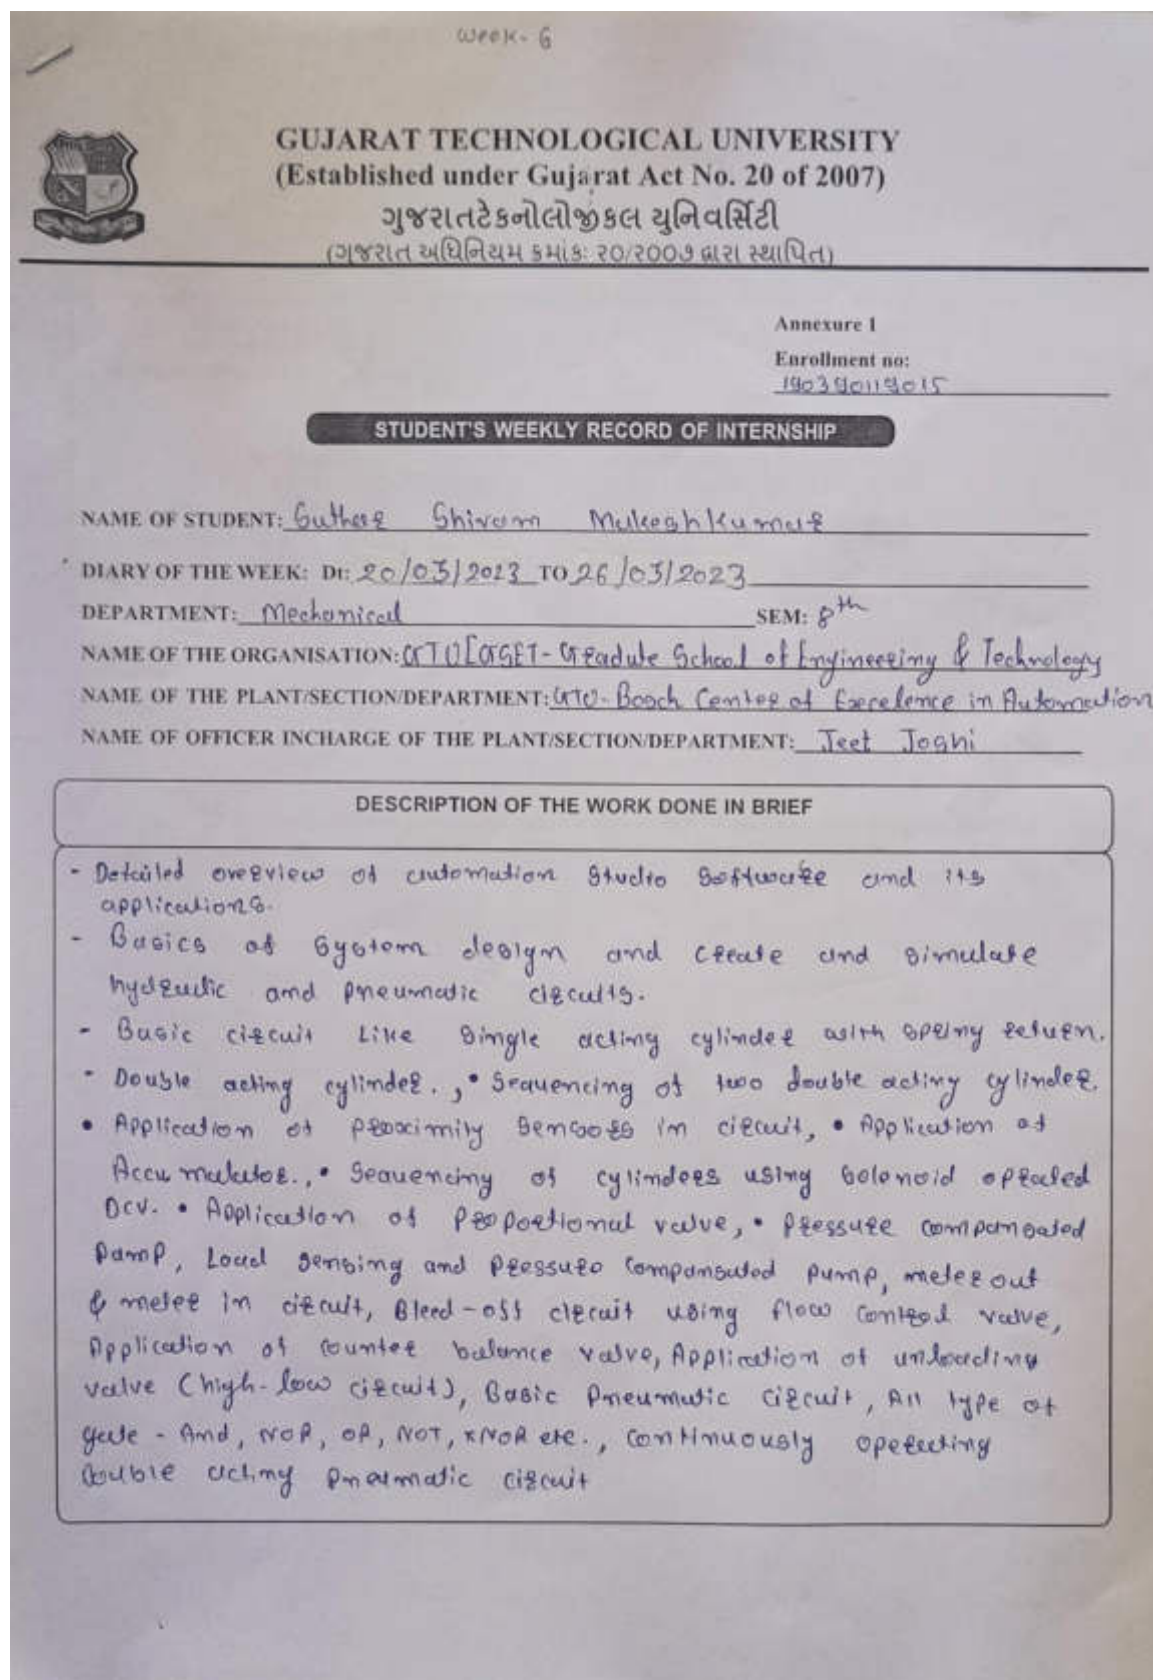 Week- 6
GUJARAT TECHNOLOGICAL UNIVERSITY
(Established under Gujarat Act No. 20 of 2007)
ગુજરાતટેકનોલોજીકલ યુનિવર્સિટી
(ગુજરાત અધિનિયમ ક્રમાંક: ૨૦/૨૦૦૭ દ્વારા સ્થાપિત)
Annexure 1
Enrollment no:
190390119015
STUDENT'S WEEKLY RECORD OF INTERNSHIP
NAME OF STUDENT: Suthar Shivam Mukeshkumar
DIARY OF THE WEEK: Dt: 20/03/2023 TO 26/03/2023
DEPARTMENT: Mechanical SEM: 8th
NAME OF THE ORGANISATION: GTU[GSET- Gradute School of Engineering & Technology
NAME OF THE PLANT/SECTION/DEPARTMENT: GTU- Bosch Center of Excelence in Automation
NAME OF OFFICER INCHARGE OF THE PLANT/SECTION/DEPARTMENT: Jeet Joshi
DESCRIPTION OF THE WORK DONE IN BRIEF
- Detailed overview of automation Studio Software and its
applications.
- Basics of System design and create and simulate
hydraulic and pneumatic circuits.
- Basic circuit Like Single acting cylinder with spring return.
- Double acting cylinder., • Sequencing of two double acting cylinder.
• Application of proximity Sensors in circuit, • Application of
Accumulator., • Sequencing of cylinders using Solenoid oprated
Dcv. • Application of Proportional valve, • Pressure compansated
Pump, Load Sensing and Pressure Compansated pump, meter out
& meter in circuit, Bleed-off circuit using flow control valve,
Application of counter balance valve, Application of unloading
valve (high-low circuit), Basic Pneumatic circuit, All type of
gate - And, NOR, OR, NOT, XNOR etc., continuously operating
Double acting Pneumatic circuit